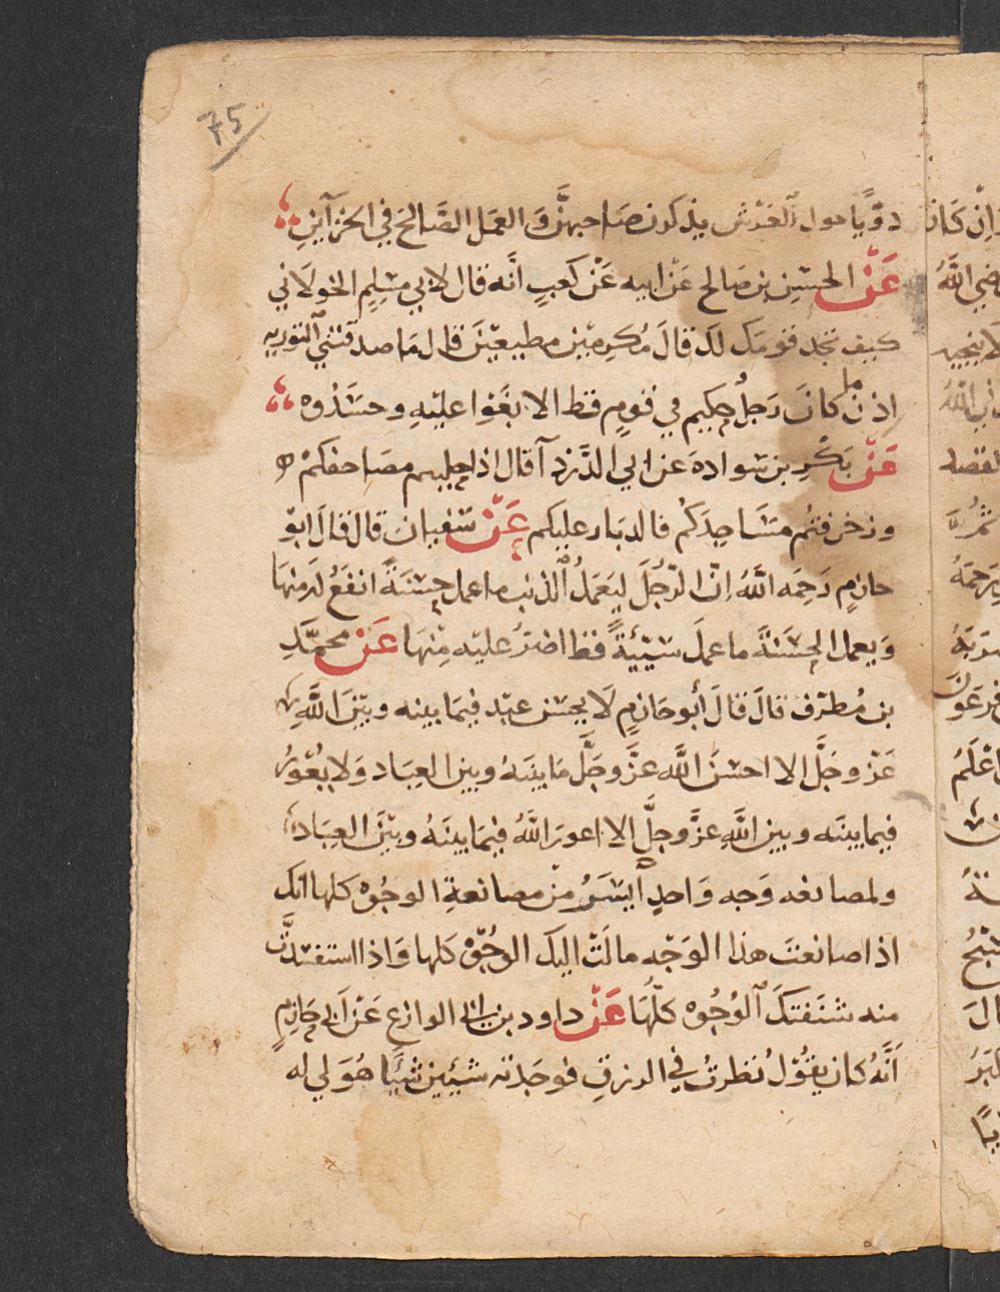 75
دوّيا حول العرش يذكرن صاحبهنّ و العمل الصّالح في الخزآينِ
عَنْ الحسَين بن صَالح عَن ابيه عَنْ كعبٍ انّه قال لابي مسْلِمٍ الخولَاني
كيف تجد قومَك لك قالَ مُكرِمين مطيعيْنَ قال مَا صدقتني التوريه
اذن ما كانَ رَجلٌ حكيم في قومٍ قط الا بغَوا عليْهِ وحسَدُوه
عَنْ بَكْرِ بن سَوادهَ عن ابي الدَّرْدآ قال اذا حليتم مصَاحفكمْ
وزخرفتُم مسَاجِدَكُم فالدبَار عليكم عَنْ سفيان قالَ قالَ ابوُ
حازمٍ رَحِمَه اللَّهُ انّ الرّجُلَ ليَعمَلُ الذنب ما عمل حسَنَةً انفَعُ لهَ منهَا
وَيعمل الحسَنةَ ما عملَ سَيّئِةً قط اضرُ عليْه مِنْهَا عَنْ محمَّدِ
بن مُطرّف قالَ قالَ أبو حَازمٍ لَا يحسن عبْد فيمَا بينه وبيْنَ اللَّهِ
عَزّ وجَلَّ الا احسَنَ اللَّه عزَّ وجَلَّ مَا بينَهُ وبين العِبَاد وَلا يُعْوِرُ
فيما بينَه وبين اللَّهِ عزَّ وجلَّ الا اعورَ اللَّهُ فيْمَا بينَهُ وبيْنَ العِبَاد
ولمصانعه وَجه وَاحدٍ ايسَرُ منْ مصانعةِ الوجُوْه كلها انك
اذا صانعتَ هذا الوَجْه مالَتْ اليك الوجُوْه كلها وَاذا استفسَدتَّ
منه شَنَفتكَ الوُجُوْه كلّهَا عَنْ داود بن الوازع عَنْ ابي حَازمٍ
اَنَّهُ كان يقوُلُ نظرتُ في الرزقِ فوجَدته شيئين شيئًا هُوَ لي له